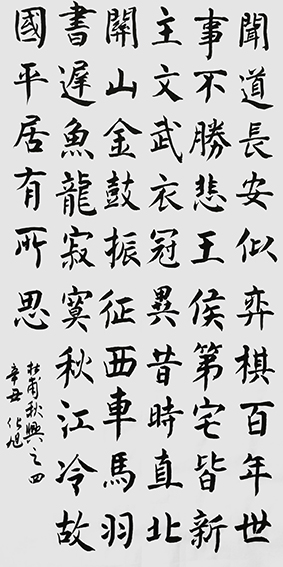 聞道長安似弈棋百年世
事不勝悲王侯第宅皆新
主文武衣冠異昔時直北
關山金鼓振征西車馬羽
書遲魚龍寂寞秋江冷故
國平居有所思
杜甫秋興之四
辛丑